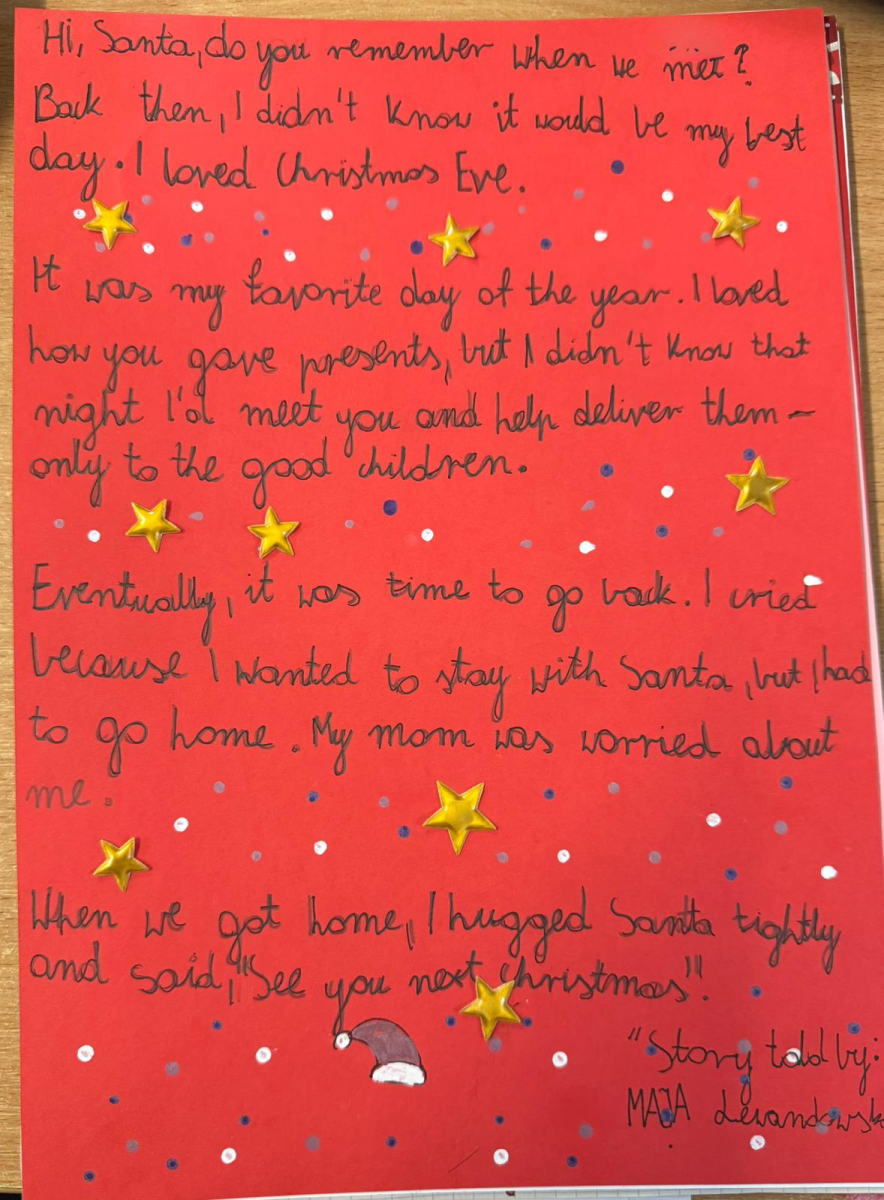 Hi, Santa, do you remember when we met?
Back then, I didn't know it would be my best
day. I loved Christmas Eve.
It was my favorite day of the year. I loved
how you gave presents, but I didn't know that
night I'd meet you and help deliver them –
only to the good children.
Eventually, it was time to go back. I cried
because I wanted to stay with Santa, but I had
to go home. My mom was worried about
me.
When we got home, I hugged Santa tightly
and said, "See you next Christmas".
"Story told by:
MAJA Lewandowsk